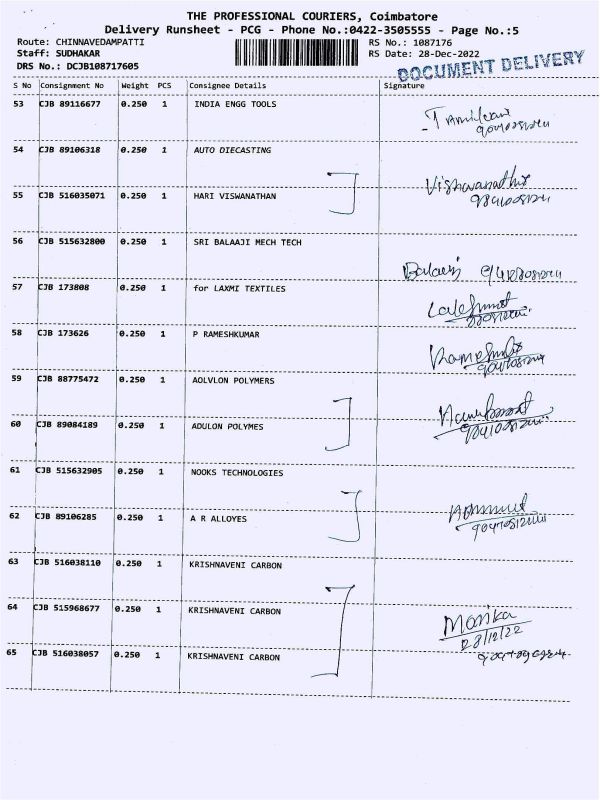 THE PROFESSIONAL COURIERS, Coimbatore
Delivery Runsheet - PCG - Phone No.:0422-3505555 - Page No.:5
Route: CHINNAVEDAMPATTI RS No.: 1087176
Staff: SUDHAKAR RS Date: 28-Dec-2022
DRS No.: DCJB108717605
DOCUMENT DELIVERY
S No Consignment No Weight PCS Consignee Details Signature
53 CJB 89116677 0.250 1 INDIA ENGG TOOLS
54 CJB 89106318 0.250 1 AUTO DIECASTING
55 CJB 516035071 0.250 1 HARI VISWANATHAN
56 CJB 515632800 0.250 1 SRI BALAAJI MECH TECH
Balaaji
57 CJB 173808 0.250 1 for LAXMI TEXTILES
58 CJB 173626 0.250 1 P RAMESHKUMAR
59 CJB 88775472 0.250 1 AOLVLON POLYMERS
60 CJB 89084189 0.250 1 ADULON POLYMES
61 CJB 515632905 0.250 1 NOOKS TECHNOLOGIES
62 CJB 89106285 0.250 1 A R ALLOYES
63 CJB 516038110 0.250 1 KRISHNAVENI CARBON
64 CJB 515968677 0.250 1 KRISHNAVENI CARBON
Monika
28/12/22
65 CJB 516038057 0.250 1 KRISHNAVENI CARBON